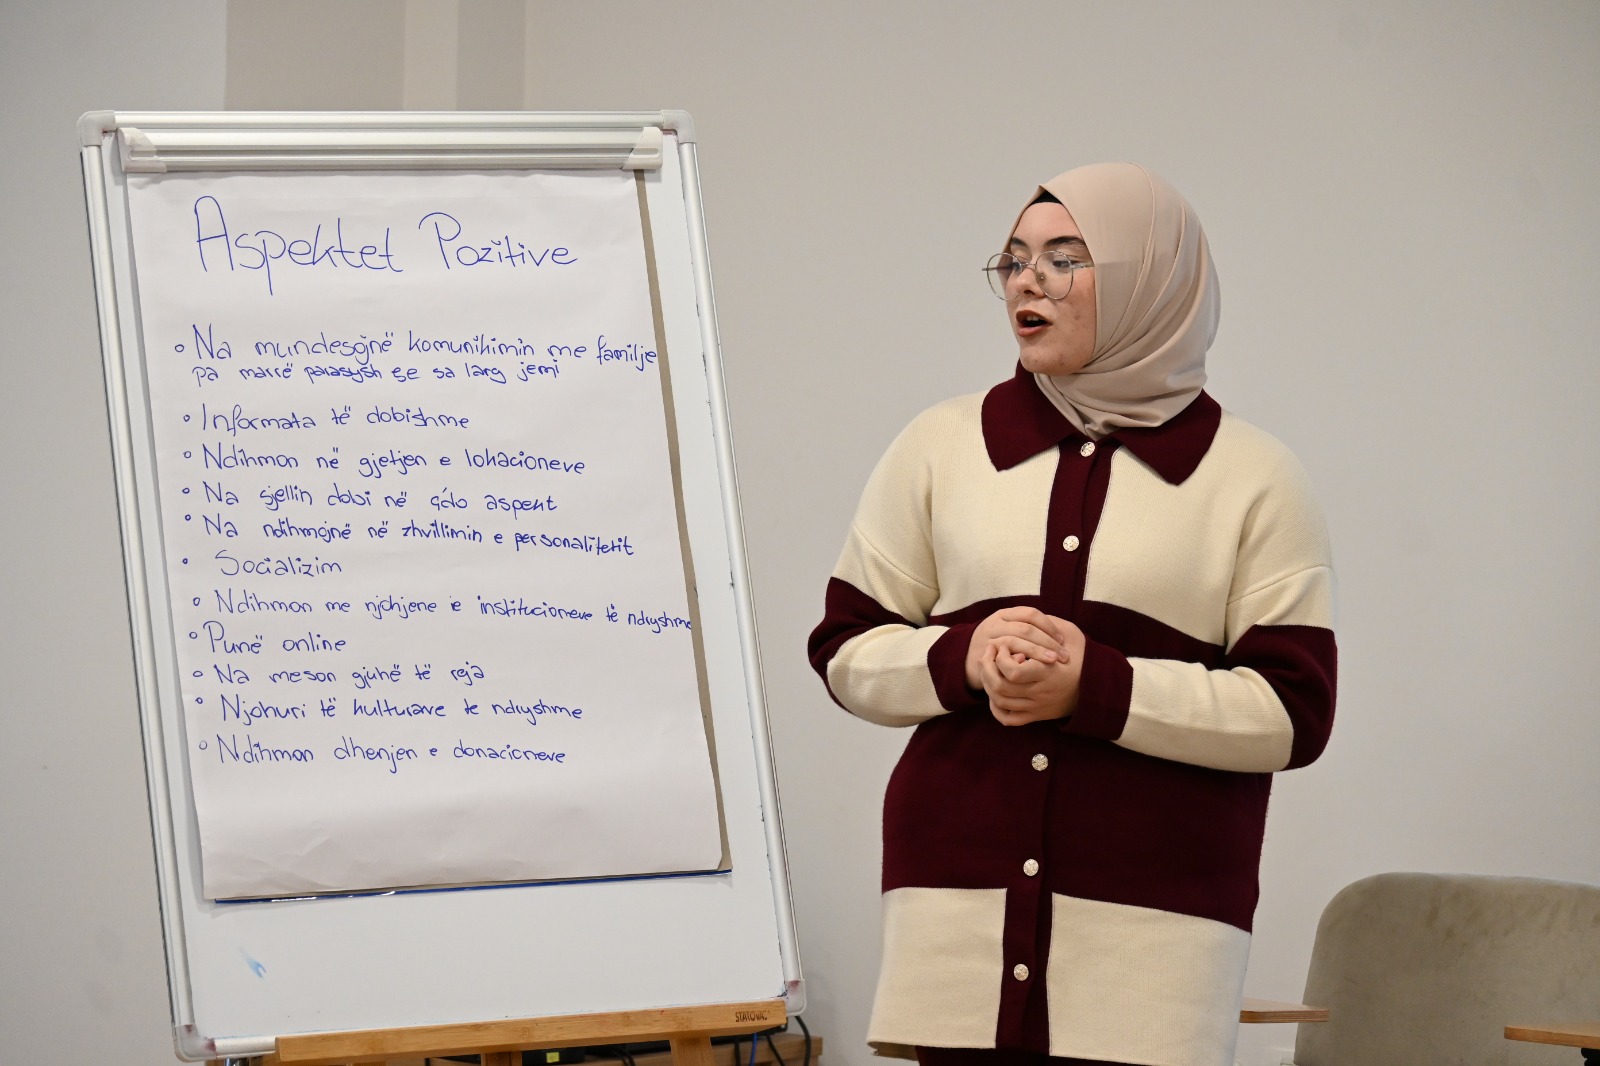 Aspektet Pozitive
Na mundesojnë komunikimin me familje
pa marrë parasysh se sa larg jemi
Informata të dobishme
Ndihmon në gjetjen e lokacioneve
Na sjellin dobi në çdo aspekt
Na ndihmojnë në zhvillimin e personalitetit
Socializim
Ndihmon me njohjene e institucioneve të ndryshme
Punë online
Na meson gjuhë të reja
Njohuri të kulturave te ndryshme
Ndihmon dhenjen e donacioneve